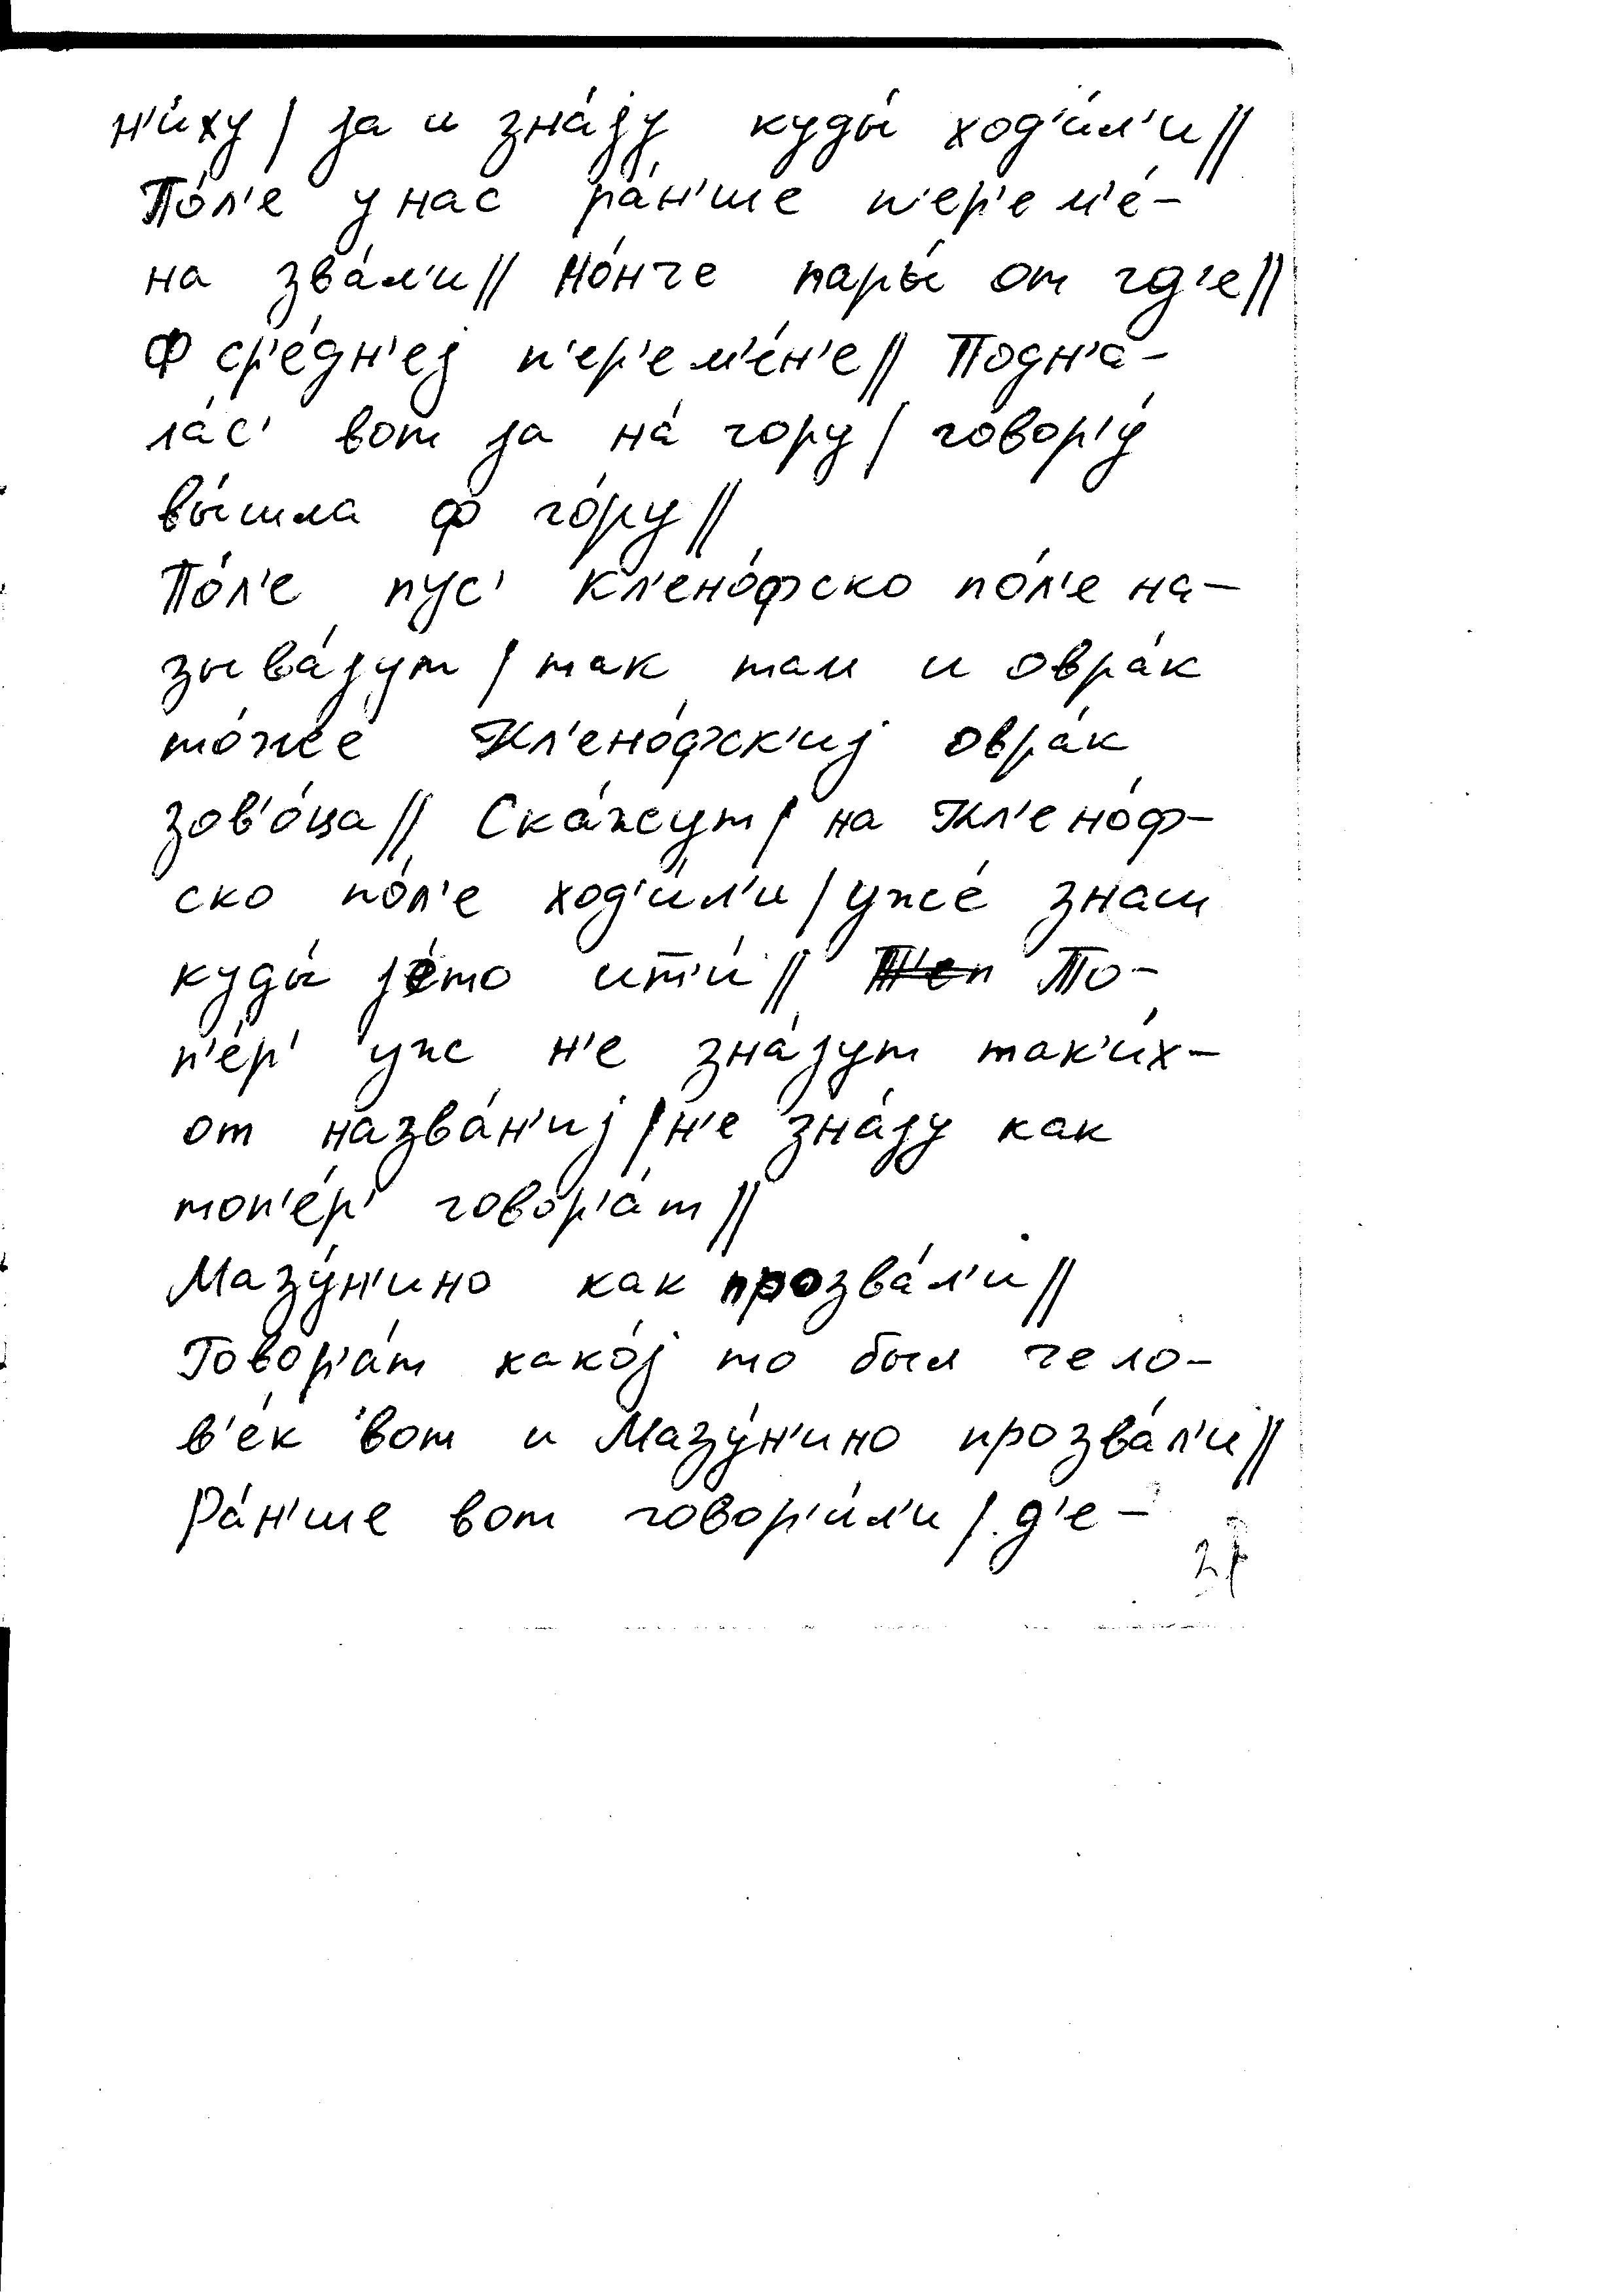 н'и́ху / jа и зна́jу куды́ ход'и́л'и //
По́л'е у нас ра́н'ше п'ер'ем'е́-
на зва́л'и // Но́нче пары́ от гд'е //
Ф ср'е́дн'еj п'ер'ем'е́н'е // Подн'а-
ла́с' вот jа на́ гору / говор'у́
вы́шла ф го́ру //
По́л'е пус' Кл'ено́фско по́л'е на-
зыва́jут / так там и овра́к
то́же Кл'ено́фск'иj овра́к
зов'о́ца // Ска́жут / на Кл'ено́ф-
ско по́л'е ход'и́л'и / уже́ знаш
куды́ jе́то ит'и́ // То-
п'е́р' уж н'е зна́jут так'и́х-
от назва́н'иj / н'е зна́jу как
топ'е́р' говор'а́т //
Мазу́н'ино как прозва́л'и //
Говор'а́т како́j то был чело-
в'е́к вот и Мазу́н'ино прозва́л'и //
Ра́н'ше вот говор'и́л'и / д'е-